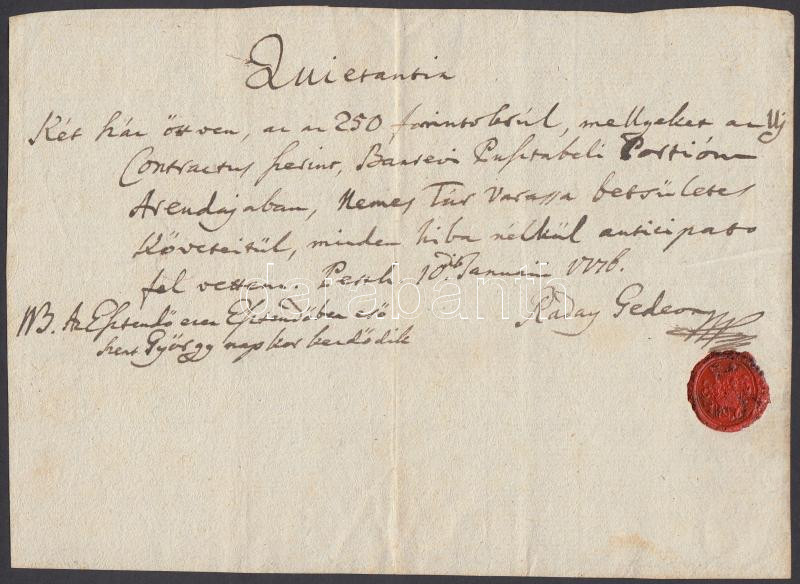 Quietantia
Két száz ötven, az az 250 forintokrúl, mellyeket az Uj
Contractus szerint, Baarévi Pusztabeli Portióm
Arendájaban, Nemes Túr Varassa betsületes
Követeitül, minden hiba nélkül anticipato
fel vettem. Pesth 10dik Januarii 1776.
NB. Az Esztendő ezen Esztendőben eső
Szent György nap kor kezdődik
Raday Gedeon
darabanth